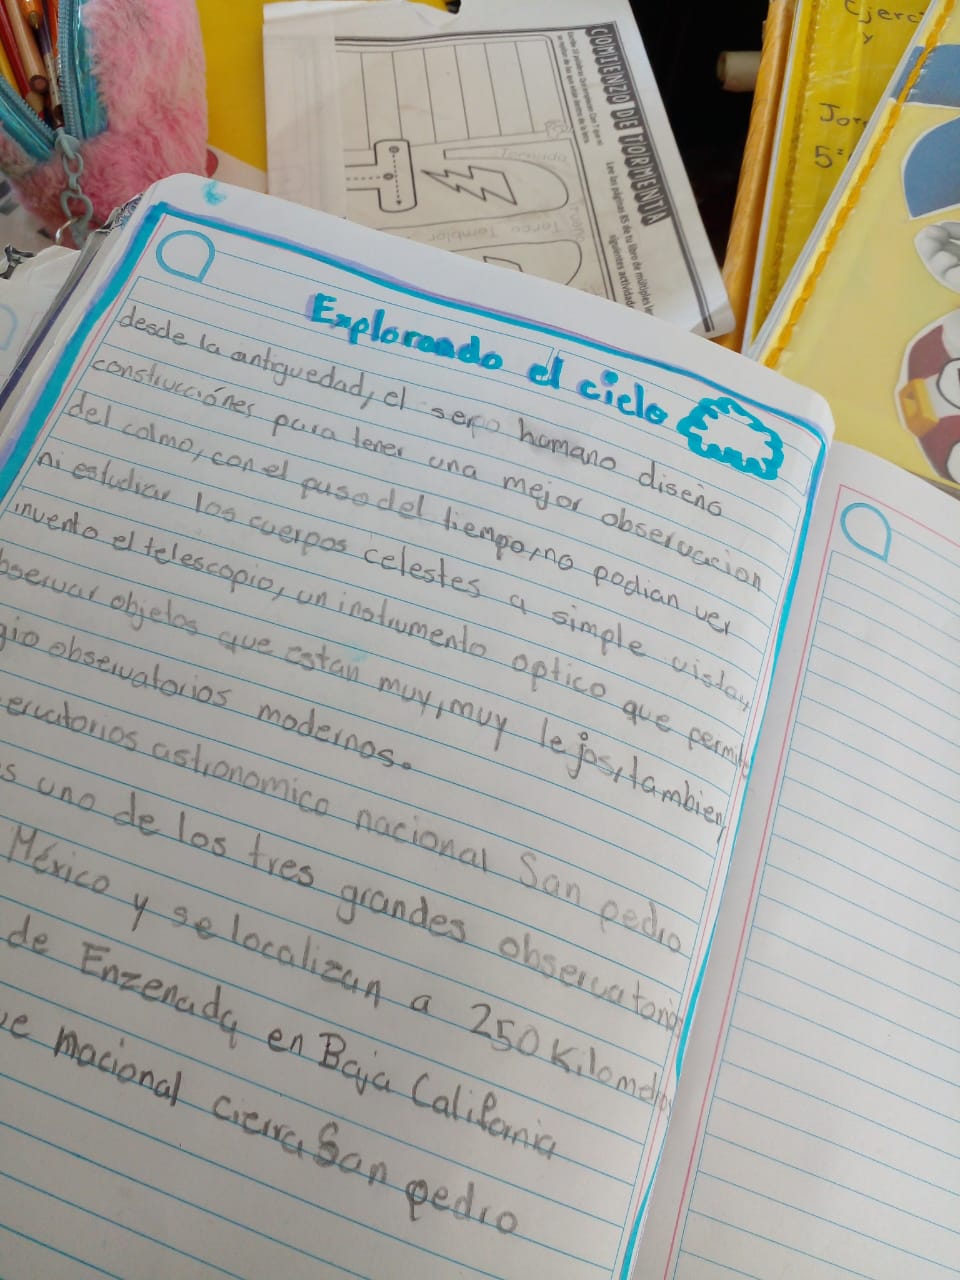 Explorando el cielo
desde la antiguedad, el serpo humano diseño
construcciónes para tener una mejor observacion
del colmo, con el puso del tiempo, no podian ver
ni estudiar los cuerpos celestes a simple vista,
invento el telescopio, un instrumento optico que permite
observar objetos que estan muy, muy lejos, tambien,
observatorios modernos.
astronomico nacional San pedro
uno de los tres grandes observatorios
México y se localizan a 250 Kilometros
de Enzenada en Baja California
macional cierra San pedro
COMIENZO DE TORMENTA
Lee las páginas 85 de tu libro de múltiples
siguientes actividades
Tornado
Trueno
Terco Temblor
Ejerc
y
Jor
5°